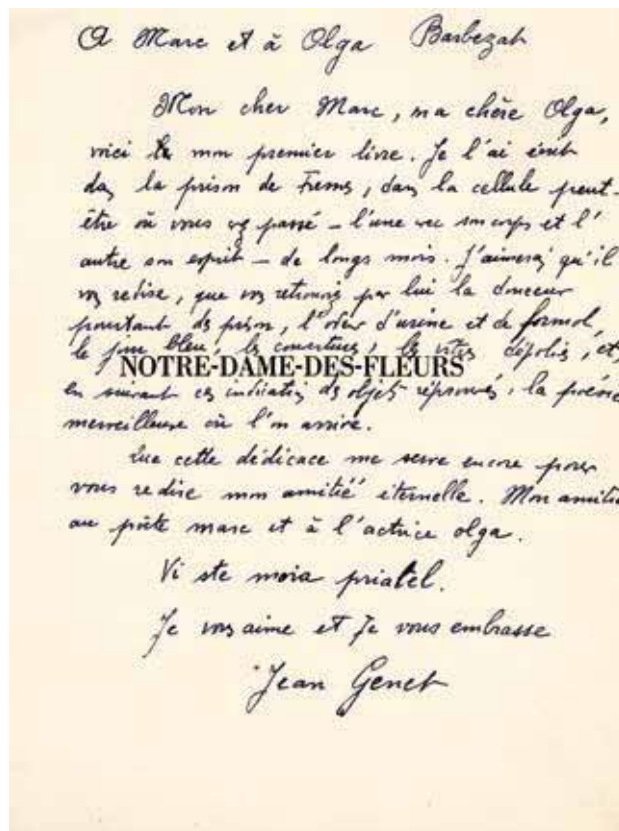 A Marc et à Olga Barbezat
Mon cher Marc, ma chère Olga,
voici mon premier livre. Je l'ai écrit
dans la prison de Fresnes, dans la cellule peut-
être où vous avez passé – l'une avec son corps et l'
autre son esprit – de longs mois. J'aimerais qu'il
vous redise, que vous par lui la douceur
pourtant de prison, l'odeur d'urine et de formol,
le jour bleu, les couvertures, les vitres dépolis, et,
NOTRE-DAME-DES-FLEURS
en suivant ces indications des objets réprouvés, la
merveilleuse où l'on arrive.
Que cette dédicace me serve encore pour
vous redise mon amitié éternelle. Mon amitié
au poète marc et à l'actrice olga.
Vi ste moia priatel.
Je vous aime et Je vous embrasse
Jean Genet